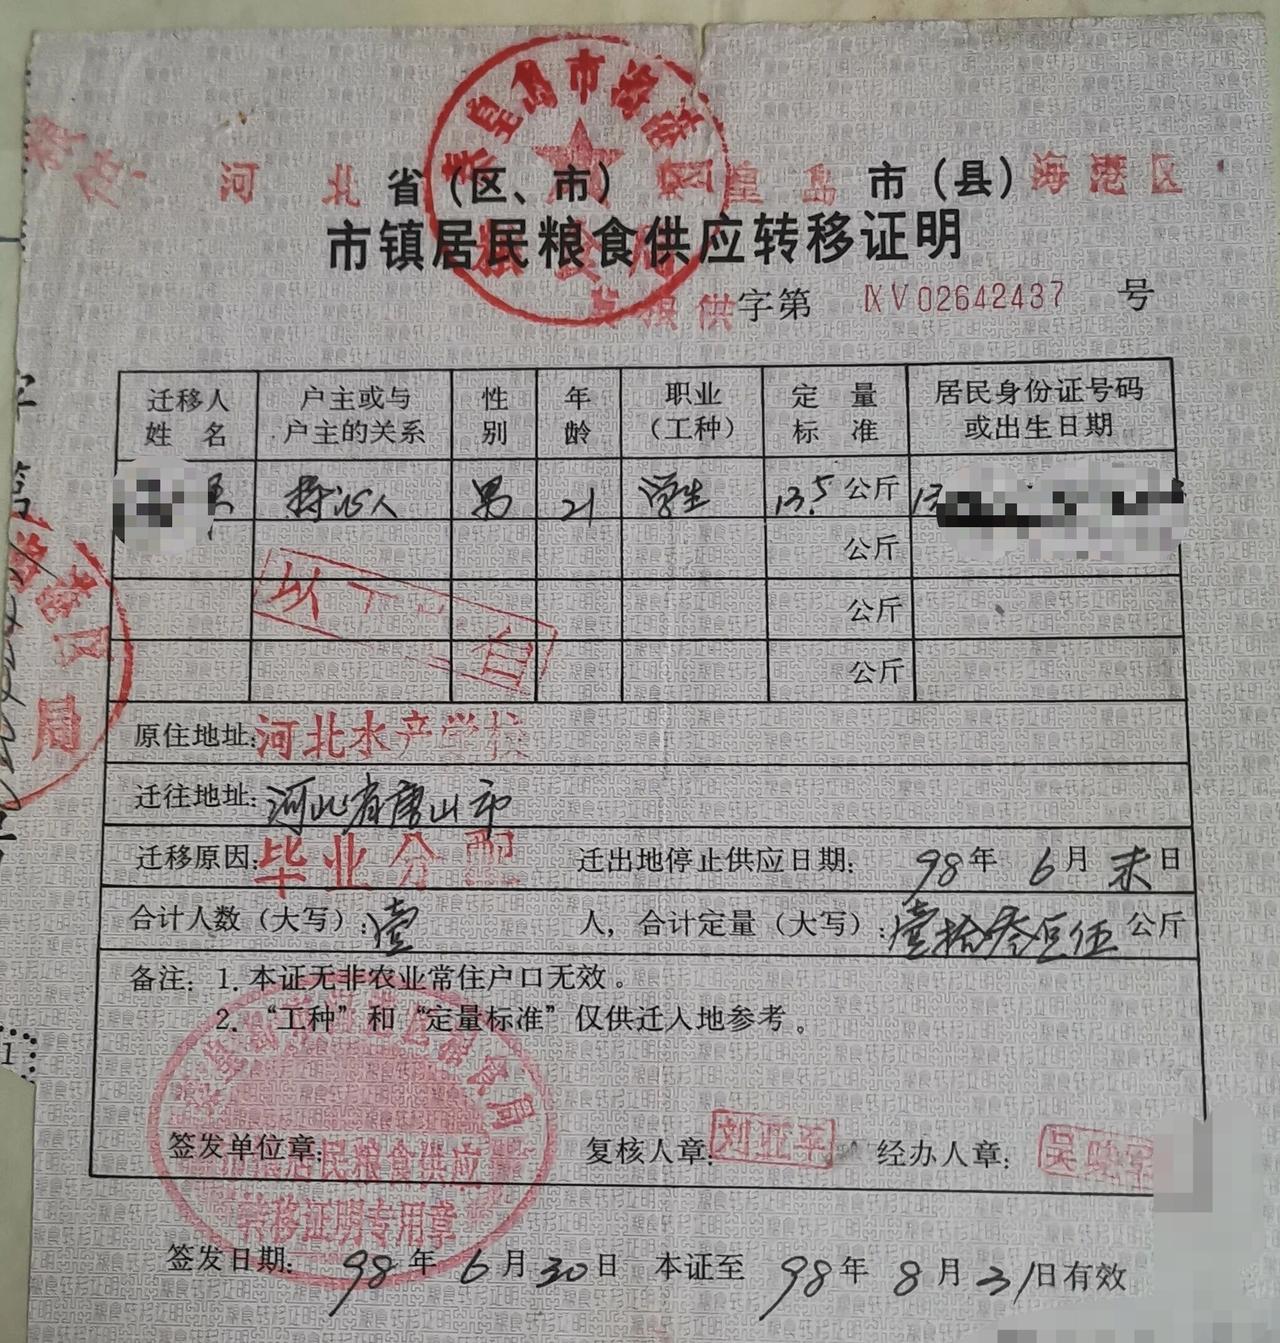 秦皇岛市海港区
粮食局
河北省（区、市）秦皇岛市（县）海港区
市镇居民粮食供应转移证明
粮供字第 IXV02642437 号
迁移人姓名 户主或与户主的关系 性别 年龄 职业（工种） 定量标准 居民身份证号码或出生日期
持证人 男 21 学生 13.5公斤 13
公斤
公斤
公斤
以下 白
原住地址：河北水产学校
迁往地址：河北省唐山市
迁移原因：毕业分配 迁出地停止供应日期：98年6月末日
合计人数（大写）：壹人，合计定量（大写）：壹拾叁点伍公斤
备注：1. 本证无非农业常住户口无效。
2. “工种”和“定量标准”仅供迁入地参考。
签发单位章： 复核人章：刘亚军 经办人章：吴
秦皇岛市海港区粮食局
市镇居民粮食供应
转移证明专用章
签发日期：98年6月30日 本证至98年8月31日有效
港区
局